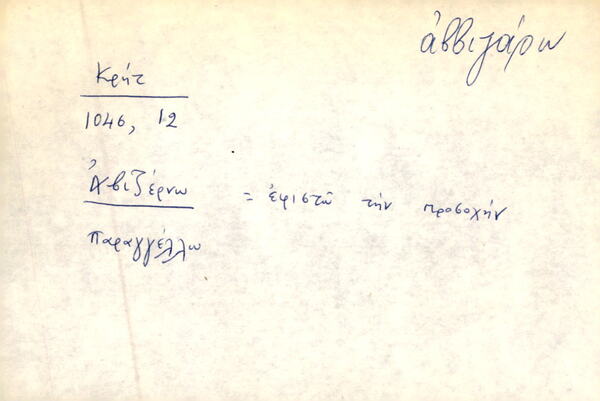 ἀββιζάρω
Κρήτ
1046, 12
Ἀβιζέρνω = ἐφιστῶ τὴν προσοχήν
παραγγέλλω